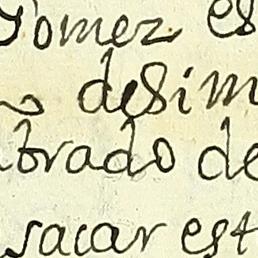 Gomez es
desim
brado de
sacar est